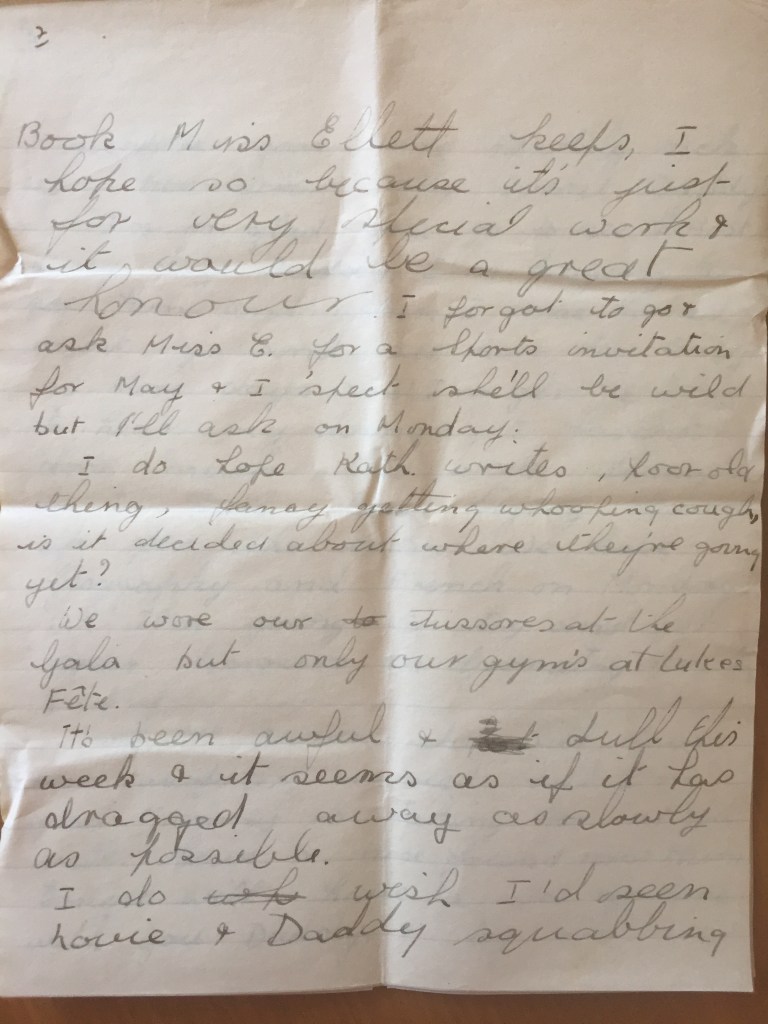 2
Book Miss Ellett keeps, I
hope so because it's just
for very special work &
it would be a great
honour. I forgot to go &
ask Miss E. for a Sports invitation
for May & I 'spect she'll be wild
but I'll ask on Monday.
I do hope Kath. writes, poor old
thing, fancy getting whooping cough,
is it decided about where they're going
yet?
We wore our to tussores at the
Gala but only our gym's at Lukes
Fête.
It's been awful & dull this
week & it seems as if it has
dragged away as slowly
as possible.
I do wh wish I'd seen
Louie & Daddy squabbing